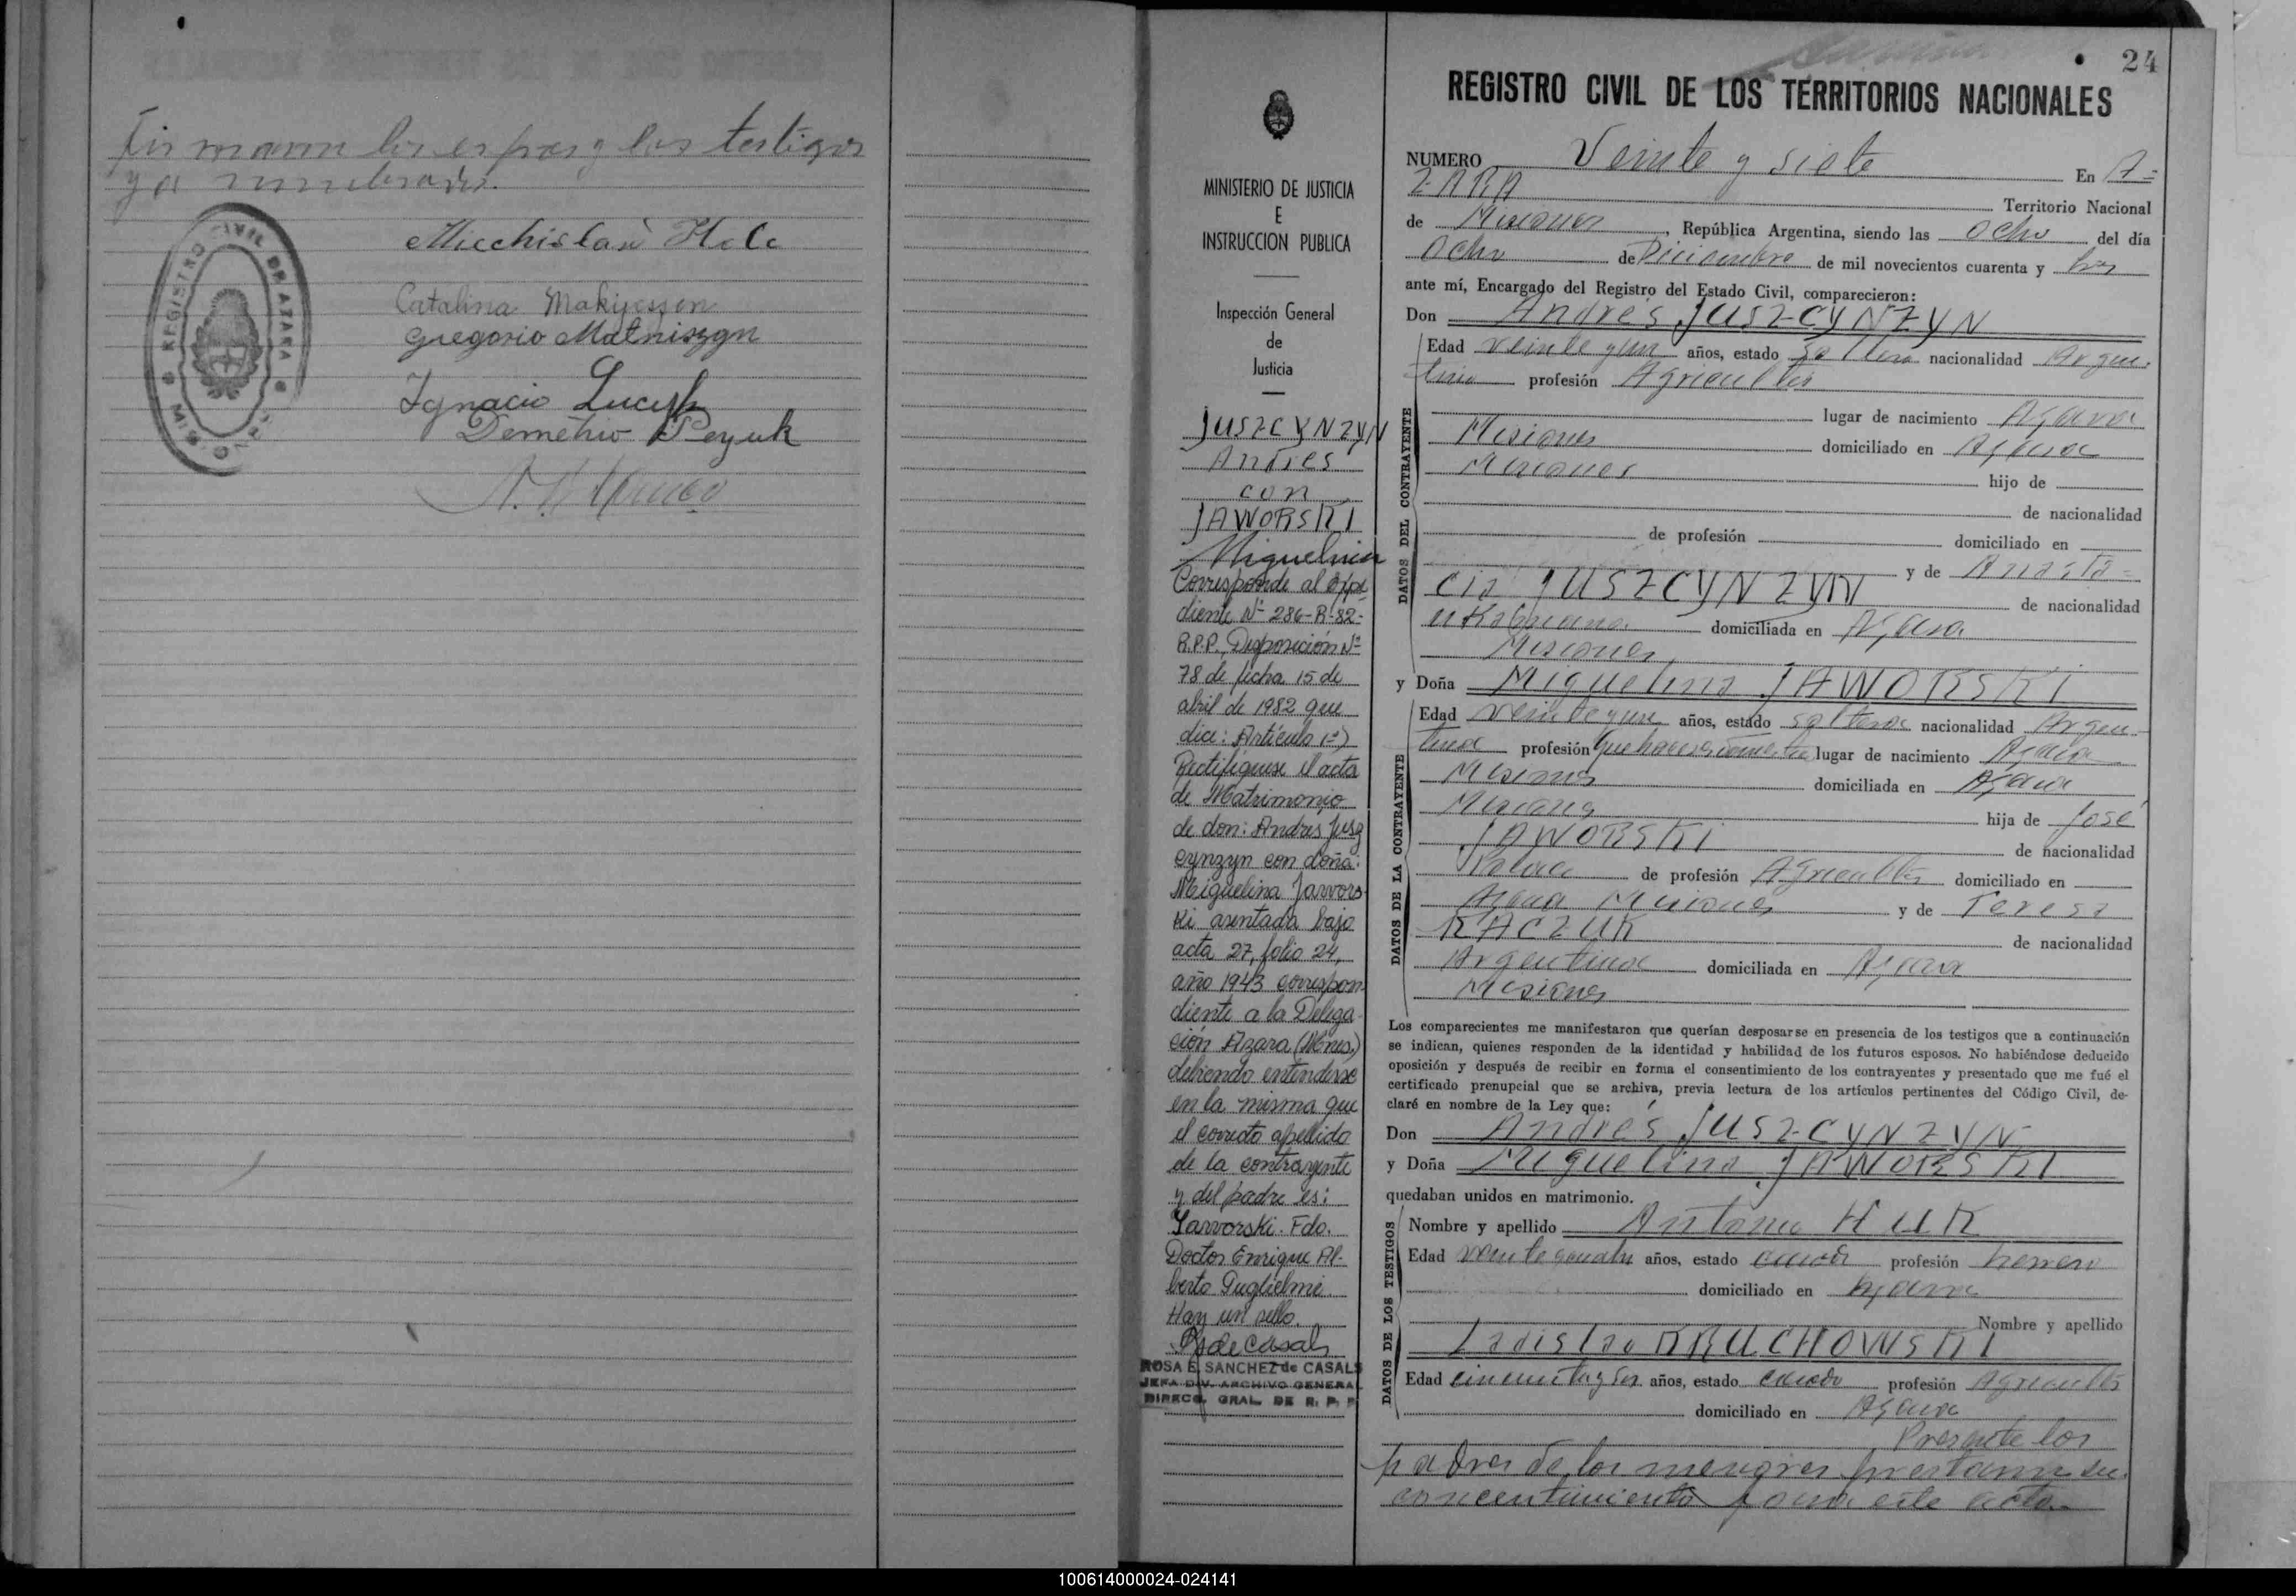 Firmaron los esposos y los testigos
ya nombrados.
REGISTRO CIVIL DE AZARA
Catalina
Gregorio
Ignacio
Demetrio
24
REGISTRO CIVIL DE LOS TERRITORIOS NACIONALES
MINISTERIO DE JUSTICIA
E
INSTRUCCION PUBLICA
Inspección General
de
Justicia
JUSZCYNZYN
Andres
con
JAWORSKI
Miguelina
Corresponde al Expe
diente Nº 286-R-82-
R.P.P. Disposición Nº
78 de fecha 15 de
abril de 1982 que
dice: Artículo 1º)
Rectifiquese el acta
de Matrimonio
de don: Andres Jusz
cynzyn con doña:
Miguelina Jarvors
ki asentada bajo
acta 27, folio 24,
año 1943 correspon
diente a la Delega
ción Azara (Mnes.)
debiendo entenderse
en la misma que
el correcto apellido
de la contrayente
y del padre es:
Yarvorski. Fdo.
Doctor Enrique Al-
berto Guglielmi.
Hay un sello.
ROSA E. SANCHEZ de CASALS
JEFA DIV. ARCHIVO GENERAL
DIRECC. GRAL. DE R. P. P.
NUMERO Veinte y siete En A-
ZARA Territorio Nacional
de Misiones, República Argentina, siendo las ocho del día
ocho de Diciembre de mil novecientos cuarenta y tres
ante mí, Encargado del Registro del Estado Civil, comparecieron:
Don Andrés JUSZCYNZYN
DATOS DEL CONTRAYENTE
Edad veinte y un años, estado soltero nacionalidad Argen-
tino profesión Agricultor
lugar de nacimiento Azara
Misiones domiciliado en Azara
Misiones hijo de
de nacionalidad
de profesión domiciliado en
y de Anasta-
cia JUSZCYNZYN de nacionalidad
domiciliada en Azara
Misiones
y Doña Miguelina JAWORSKI
DATOS DE LA CONTRAYENTE
Edad veinte y un años, estado soltera nacionalidad Argen-
tina profesión lugar de nacimiento Azara
Misiones domiciliada en Azara
Misiones hija de José
JAWORSKI de nacionalidad
Polaca de profesión Agricultor domiciliado en
Azara Misiones y de Teresa
KACZUK de nacionalidad
Argentina domiciliada en Azara
Misiones
Los comparecientes me manifestaron que querían desposarse en presencia de los testigos que a continuación
se indican, quienes responden de la identidad y habilidad de los futuros esposos. No habiéndose deducido
oposición y después de recibir en forma el consentimiento de los contrayentes y presentado que me fué el
certificado prenupcial que se archiva, previa lectura de los artículos pertinentes del Código Civil, de-
claré en nombre de la Ley que:
Don Andrés JUSZCYNZYN
y Doña Miguelina JAWORSKI
quedaban unidos en matrimonio.
DATOS DE LOS TESTIGOS
Nombre y apellido Antonio HUK
Edad años, estado casado profesión herrero
domiciliado en Azara
Nombre y apellido
Ladislao KRUCHOWSKI
Edad años, estado casado profesión Agricultor
domiciliado en Azara
Presente los
padres de los menores prestaron su
concentimiento para este acto.
100614000024-024141